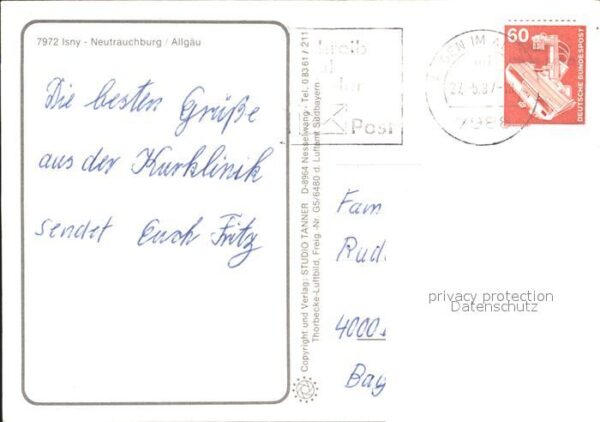 7972 Isny - Neutrauchburg / Allgäu
Die besten Grüße
aus der Kurklinik
sendet Euch Fritz
Copyright und Verlag: STUDIO TANNER D-8964 Nesselwang · Tel. 08361/211
Thorbecke-Luftbild, Freig.-Nr. G5/6480 d. Luftamt Südbayern
Post
GEN IM
7988
60
DEUTSCHE BUNDESPOST
Fam
Rud
4000
Bay
privacy protection
Datenschutz